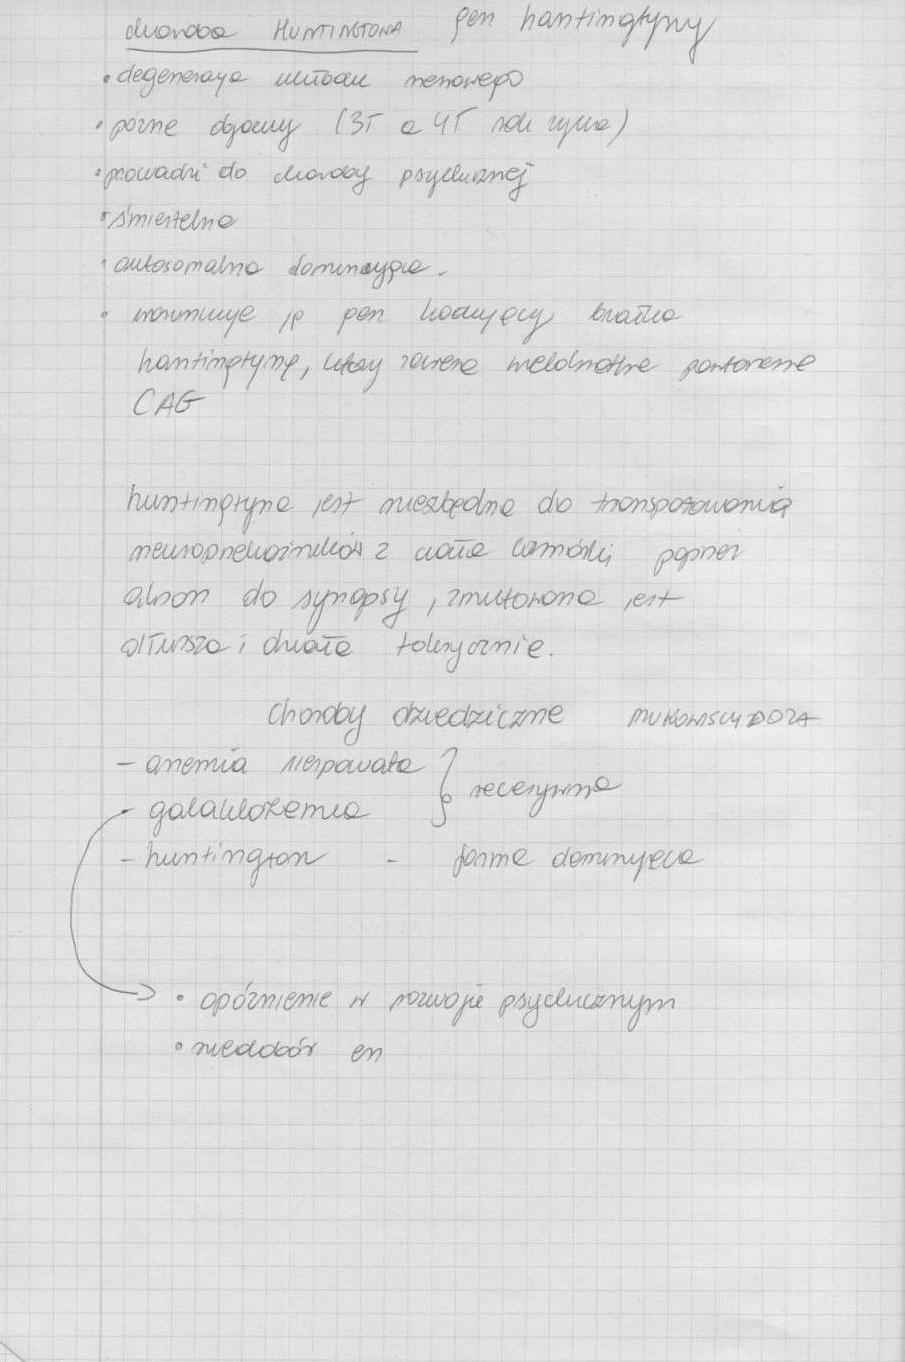 choroba HUNTINGTONA gen hantingtyny
• degeneracja układu nerwowego
• późne objawy (35 a 45 rok życia)
• prowadzi do choroby psychicznej
• śmiertelna
• autosomalna dominująca.
• warunkuje ją gen kodujący białko
hantingtynę, który zawiera wielokrotne powtórzenie
CAG
huntingtyna jest niezbędna do transportowania
neuroprzekaźników z ciała komórki poprzez
akson do synapsy, zmutowana jest
dłuższa i działa toksycznie.
Choroby dziedziczne MUKOWISCYDOZA
- anemia sierpowata } recesywna
- galaktozemia
- huntington - forma dominująca
• opóźnienie w rozwoju psychicznym
• niedobór en